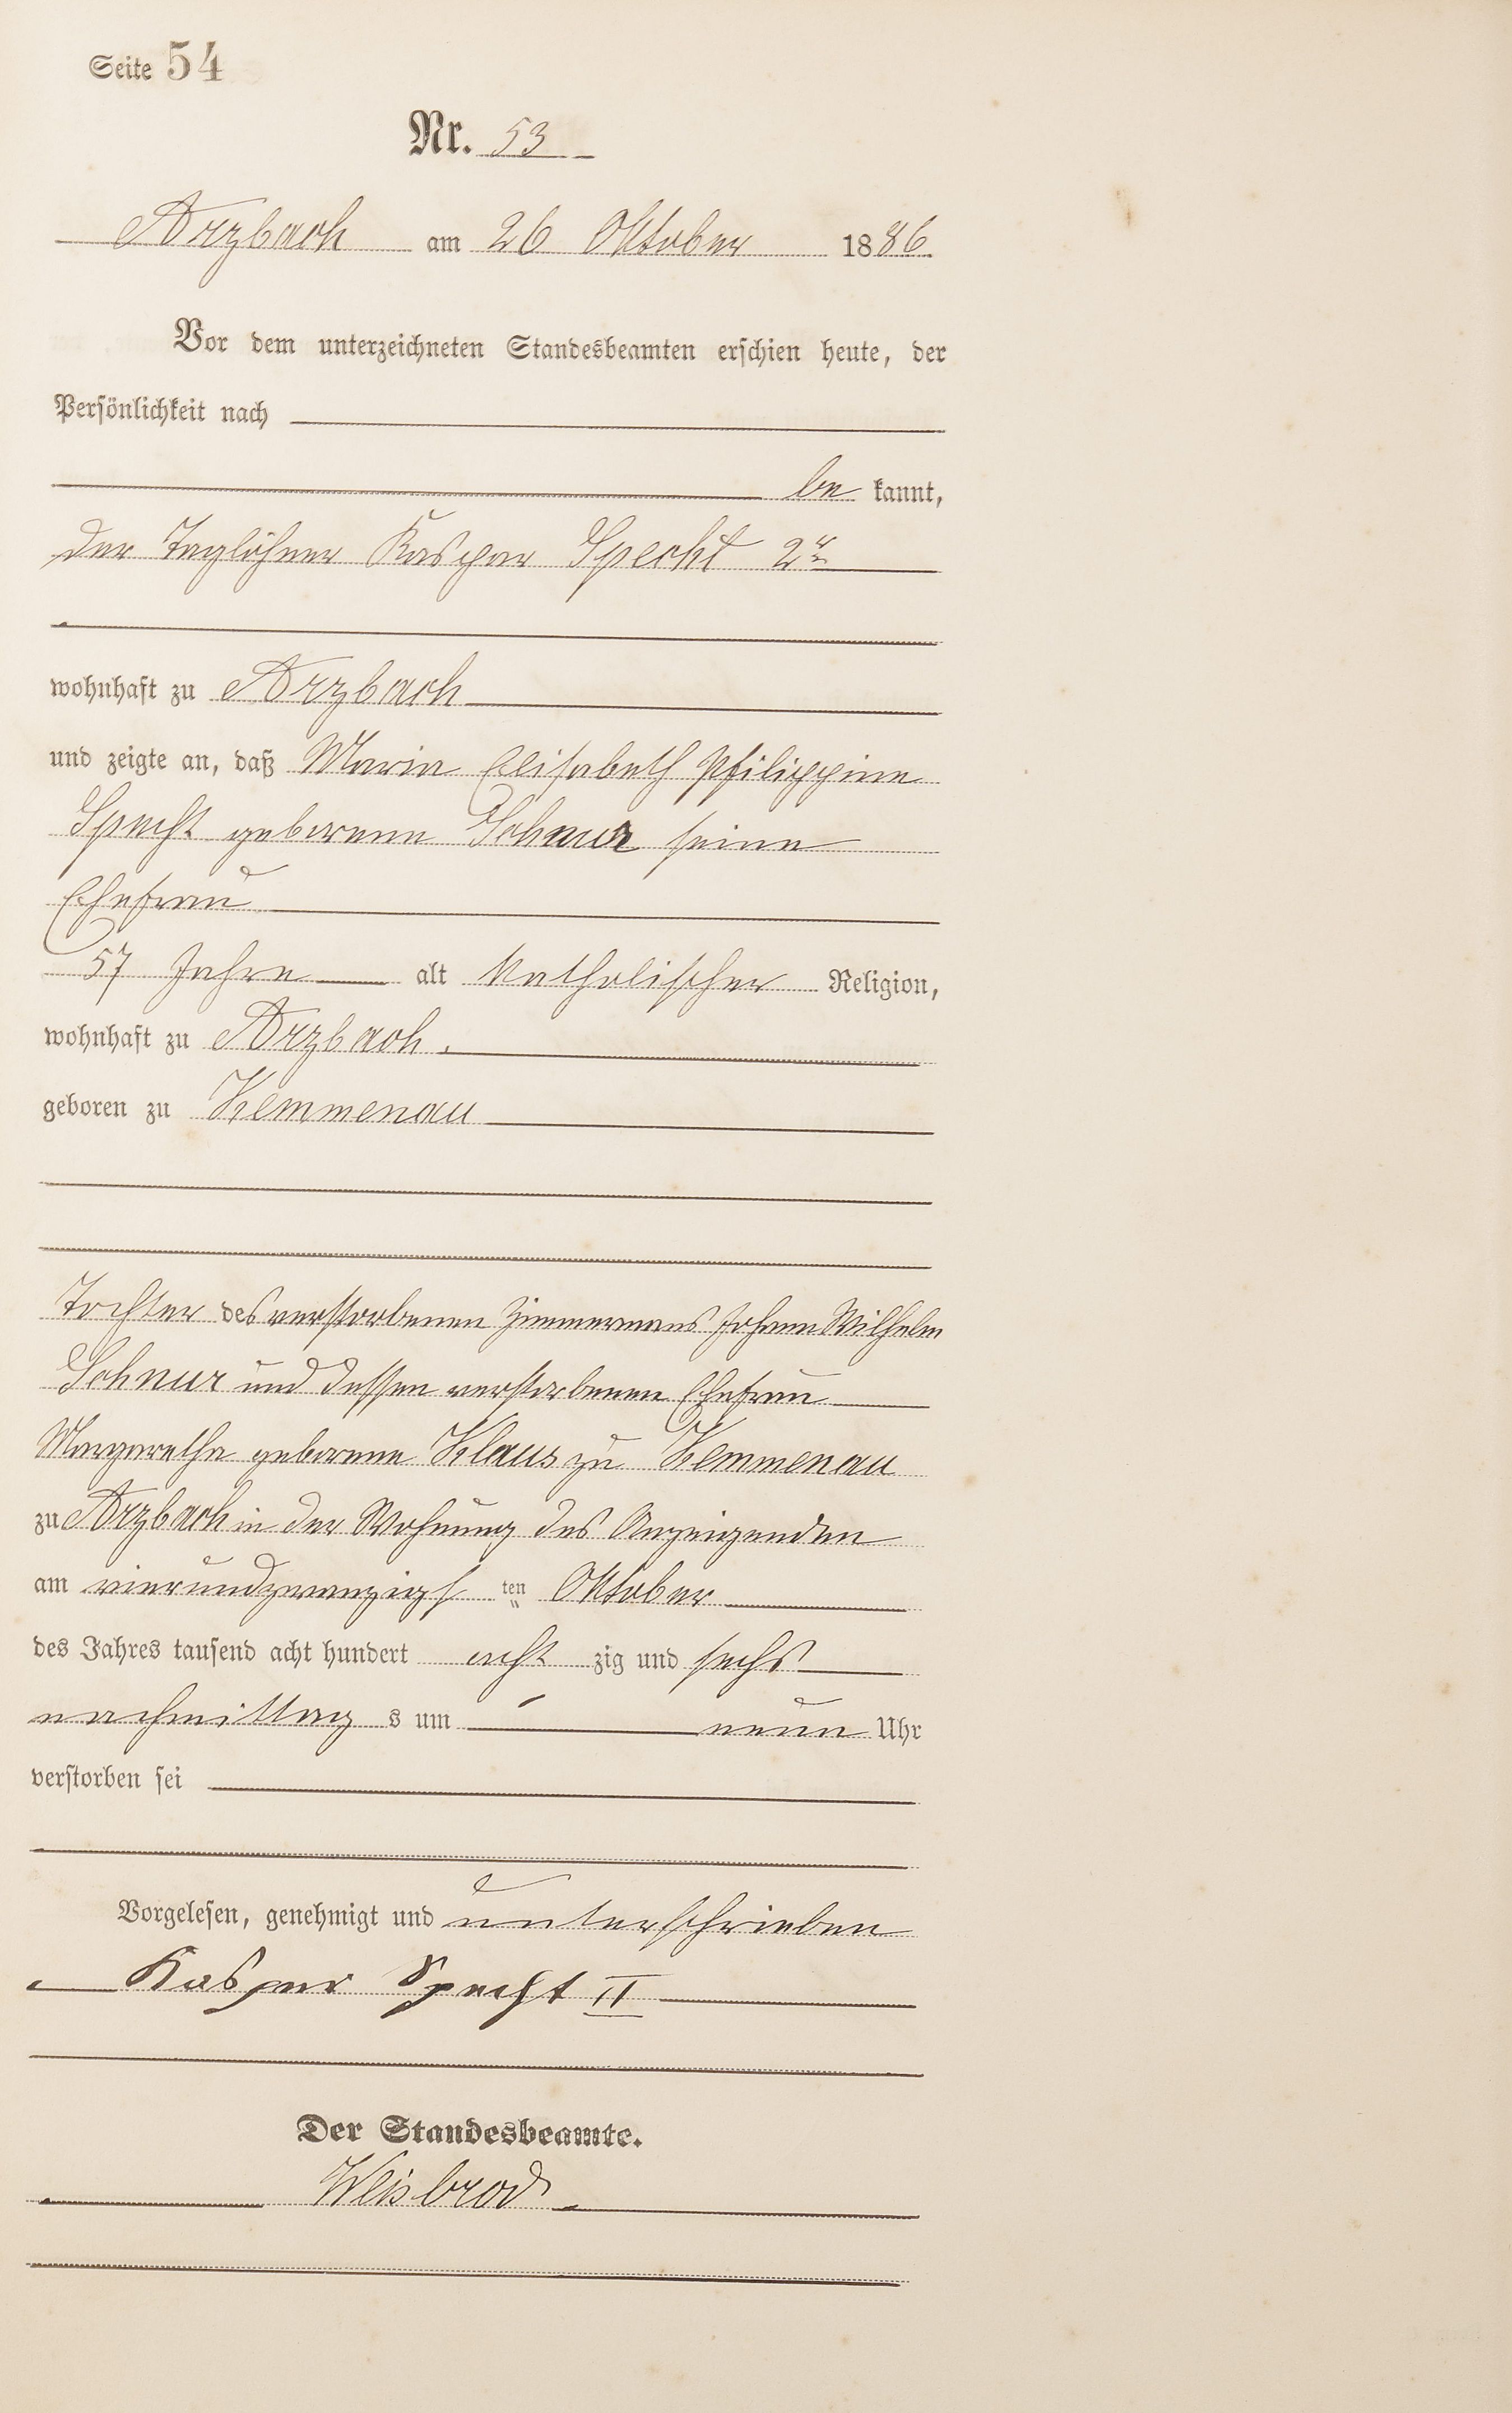 Seite 54
Nr. 53
Arzbach am 26 Oktober 1886
Vor dem unterzeichneten Standesbeamten erschien heute, der
Persönlichkeit nach
be kannt,
der Taglöhner Kaspar Specht 2r
wohnhaft zu Arzbach
und zeigte an, daß Maria Elisabeth Philippine
Specht geborene Schnur seine
Ehefrau
57 Jahre alt katholischer Religion,
wohnhaft zu Arzbach.
geboren zu Kemmenau
Tochter des verstorbenen Zimmermans Johann Wilhelm
Schnur und dessen verstorbenen Ehefrau
Margarethe geborene Klaus zu Kemmenau
zu Arzbach in der Wohnung des Anzeigenden
am vierundzwanzigs ten Oktober
des Jahres tausend acht hundert acht zig und sechs
nachmittag s um neun Uhr
verstorben sei
Vorgelesen, genehmigt und unterschrieben
Kasper Specht II
Der Standesbeamte.
Weisbrod